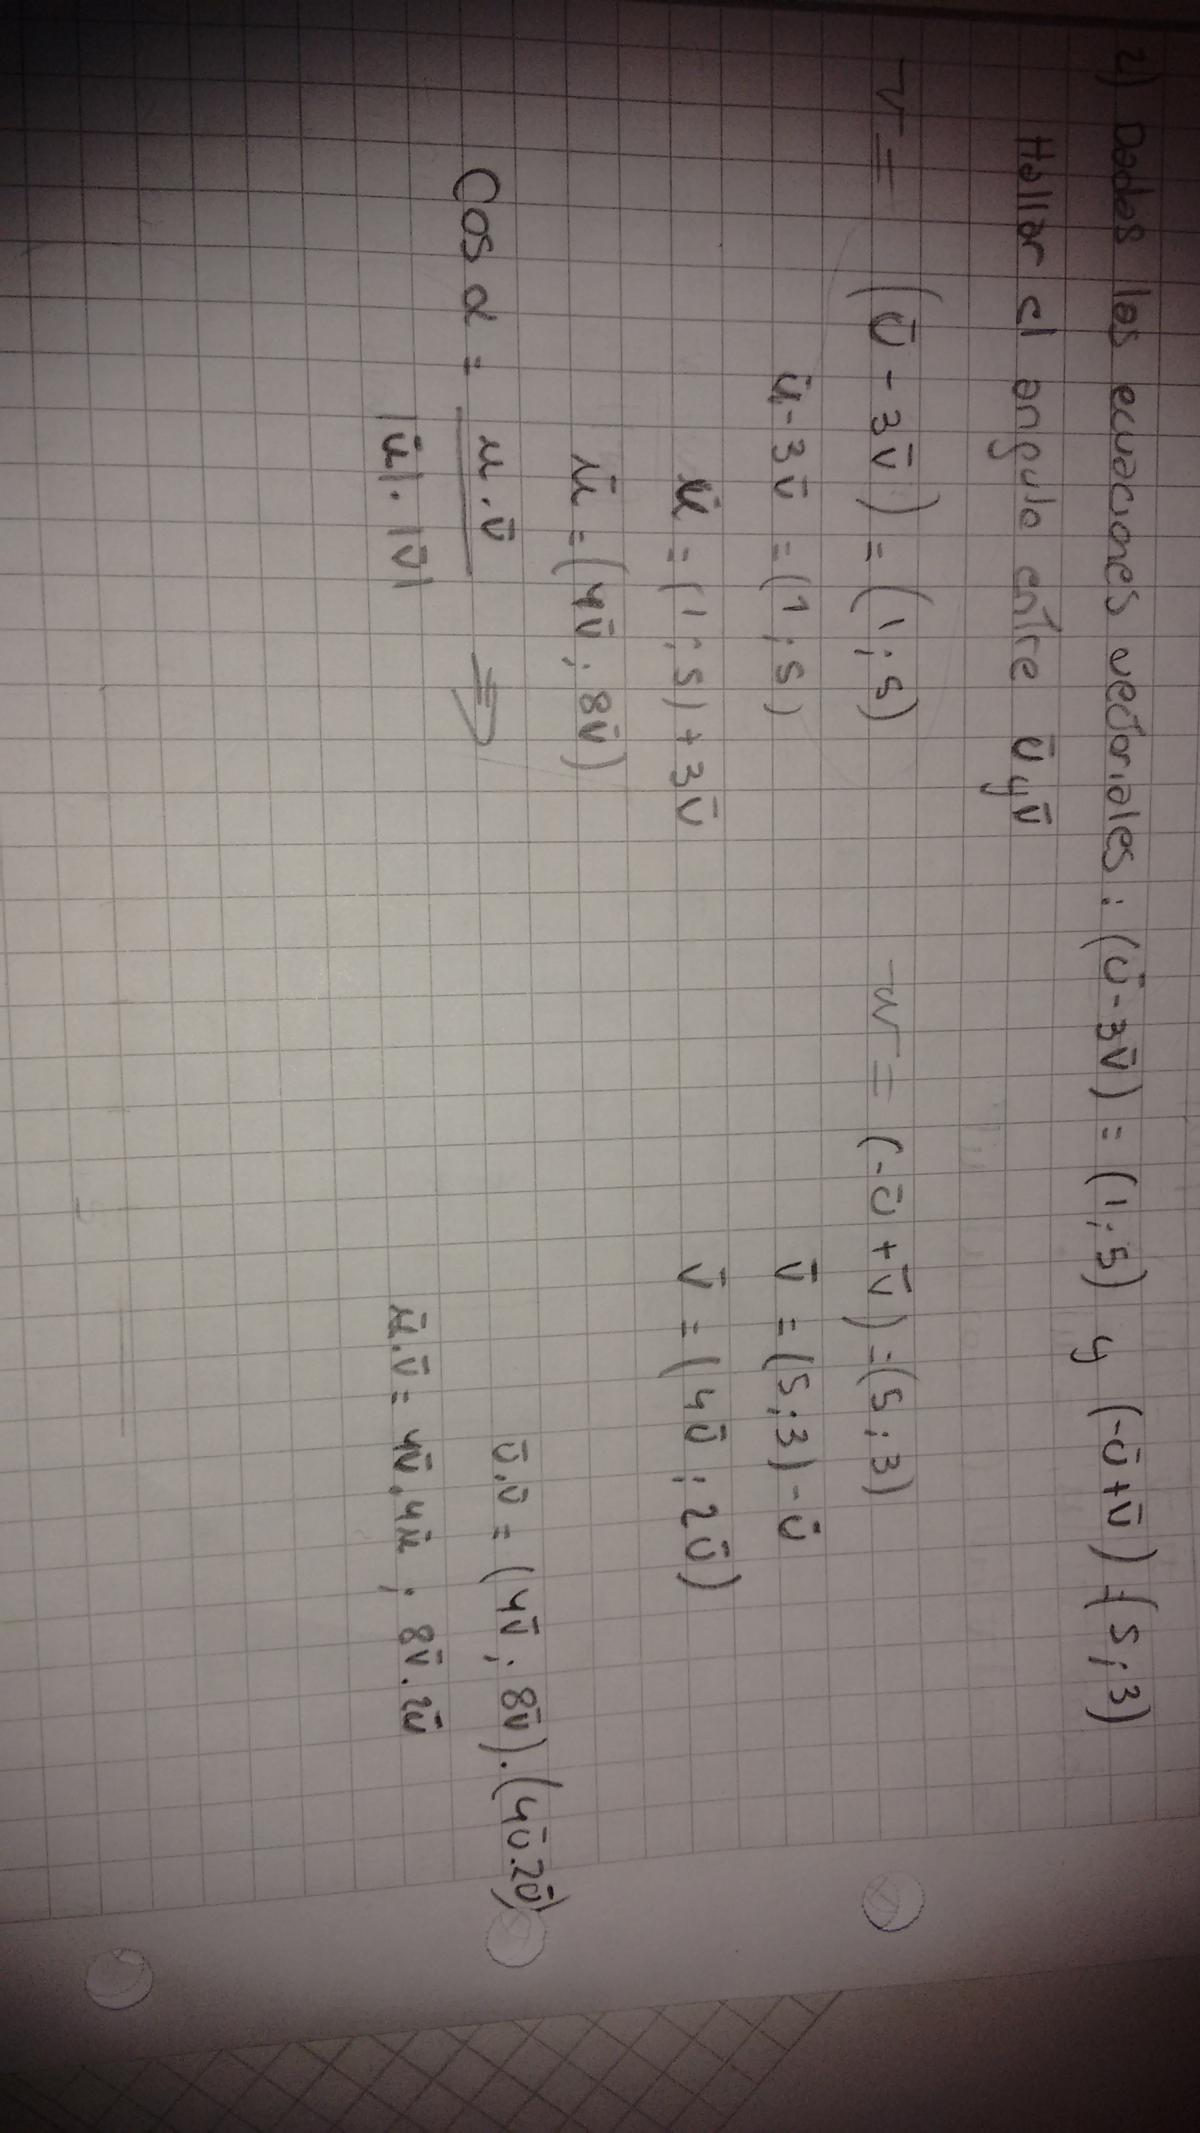 2) Dadas las ecuaciones vectoriales: (ū - 3v̄) = (1; 5) y (-ū + v̄) = (5; 3)
Hallar el angulo entre ū y v̄
v = (ū - 3v̄) = (1; 5)
ū - 3v̄ = (1; 5)
ū = (1; 5) + 3v̄
ū = (4v̄; 8v̄)
w = (-ū + v̄) = (5; 3)
v̄ = (5; 3) - ū
v̄ = (4ū; 2ū)
Cos α = u . v̄ / |ū| . |v̄| ⇒
ū.v̄ = (4v̄; 8v̄).(4ū.2ū)
ū.v̄ = 4v̄.4ū; 8v̄.2ū